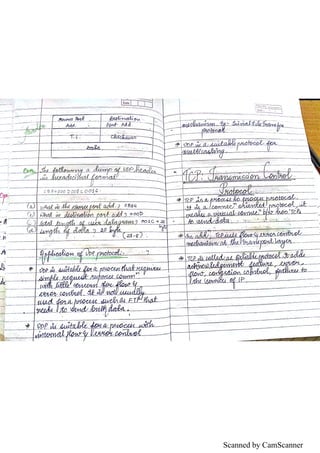 Source Port Add.
Destination Port Add
T.L.
Checksum
Data
Que The following a dump of UDP header in hexadecimal format
(a) What is the source port add.?
(b) What is destination port add?
(c) Total length of user datagram?
(d) Length of data?
(28-8)
Application of UDP protocol:
* UDP is suitable for a process that requires
simple request response commn
with little concern for flow &
error control. It is not usually
used for a process such as FTP that
needs to send bulk data.
* UDP is suitable for a process with
internal flow & error control
mechanism eg:- Trivial File Transfer
protocol
* UDP is a suitable protocol for
multicasting.
TCP: Transmission Control
Protocol
* TCP is a process to process protocol.
It is a connec oriented protocol, it
creates a virtual connec b/w two TCPs
to send data
* In addn, TCP uses flow & error control
mechanism at the transport layer.
* TCP is called as reliable protocol. It adds
acknowledgement feature, error,
flow, congestion control, features to
the service of IP
Scanned by CamScanner